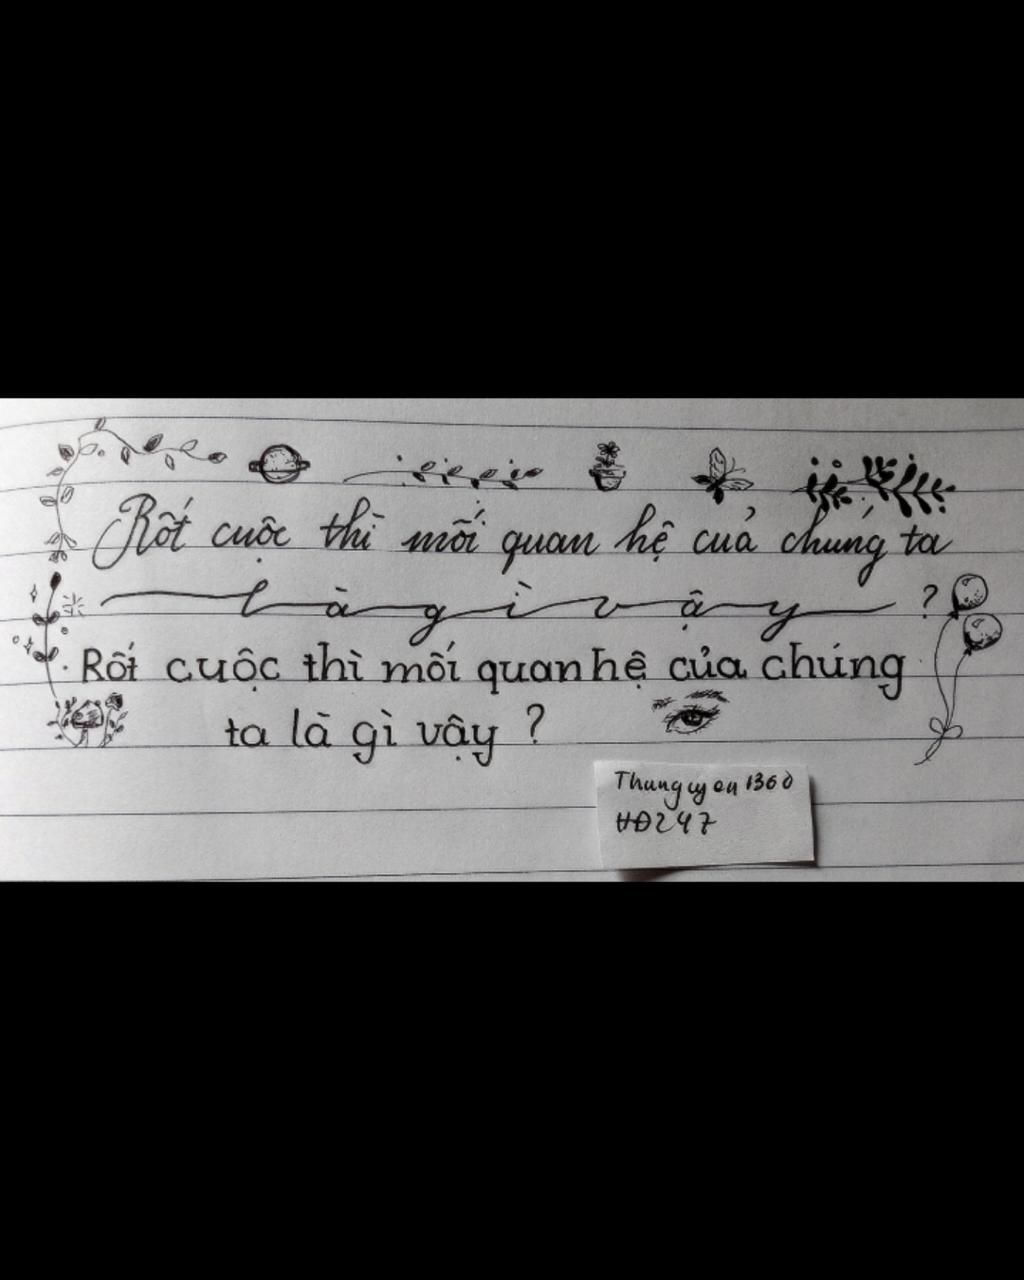 Rốt cuộc thì mối quan hệ của chúng ta
là gì vậy ?
Rốt cuộc thì mối quan hệ của chúng
ta là gì vậy ?
Thunguyen1360
HD247